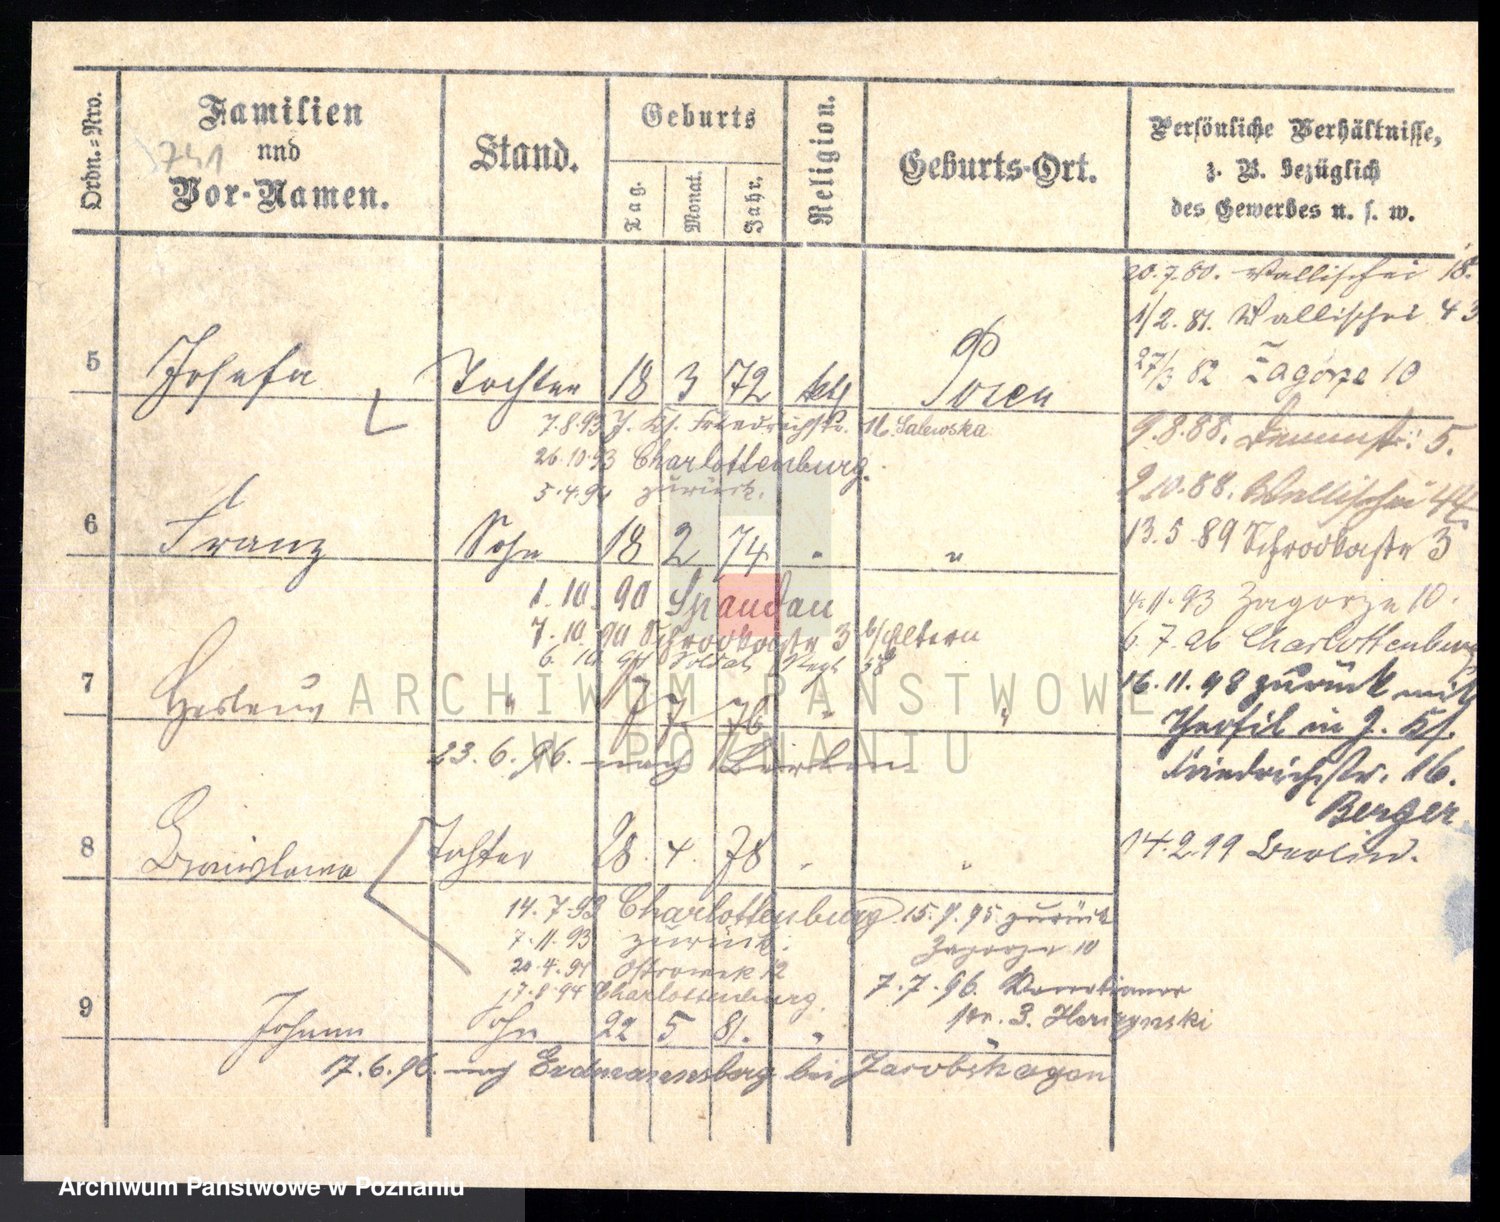 Ordn.=Nro.
Familien
und
Vor-Namen.
Stand.
Geburts
Tag.
Monat.
Jahr.
Religion.
Geburts-Ort.
Persönliche Verhältnisse,
z. B. bezüglich
des Gewerbes u. s. w.
20.7.80. Wallischei 18.
1/2. 81. Wallischei 43
27/3 82 Zagórze 10
5 Josefa Tochter 18 3 72 kth Posen
7.8.93 J. Kf. Friedrichstr. 16. Salewska
26.10.93 Charlottenburg.
5.4.94 zurück.
9.8.88. 5.
2.10.88. Wallischei 44
13.5.89 Schrodkastr 3
6 Franz Sohn 18 2 74 " "
1.10.90 Spandau
7.10.90 Schrodkastr 3 b/Eltern
6.10.94 Soldat Regt 58
4.11.93 Zagorze 10.
6.7.96 Charlottenburg
16.11.98 zurück mit
in J. Kf.
Friedrichstr. 16.
Berger
14.2.99 Berlin.
7 " 7 7 76 " "
23.6.96. nach Berlin
8 Bronislawa Tochter 28. 4. 78 " "
14.7.93 Charlottenburg 15.9.95 zurück
7.11.93 zurück. Zagorze 10
20.4.94 Ostrowek 12
17.8.94 Charlottenburg.
7.7.96. Venetianer
str. 3.
9 Johann Sohn 22 5 81. " "
17.6.96. nach Erdmannsberg bei Jacobshagen
741
ARCHIWUM PAŃSTWOWE
W POZNANIU
Archiwum Państwowe w Poznaniu